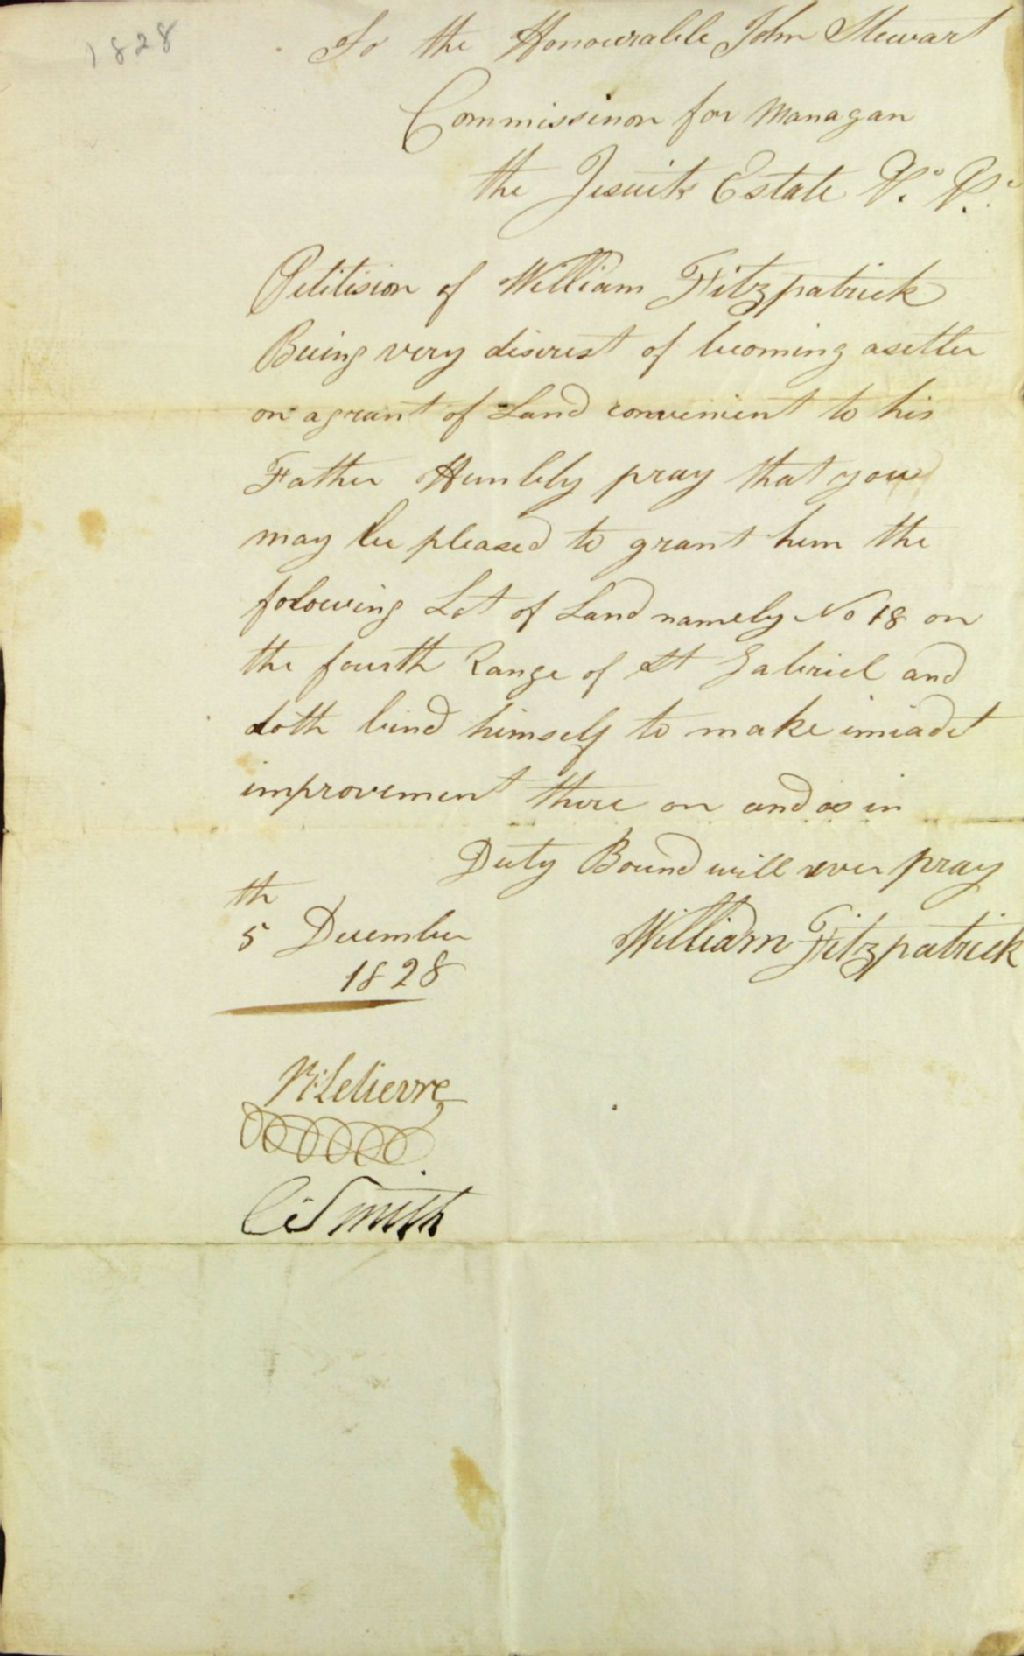 1828
To the Honourable John Stewart
Commissinon for Managan
the Jesuits Estate &c. &c.
Petitision of William Fitzpatrick
Being very disirest of becoming asetler
on agrant of Land convenient to his
Father Humbly pray that you
may be pleased to grant him the
folowing Lot of Land namely No 18 on
the fourth Range of St Gabriel and
doth bind himself to make imiadt
improvement there on and as in
Duty Bound will ever pray
th
5 December
1828
William Fitzpatrick
Lelievre
C: Smith